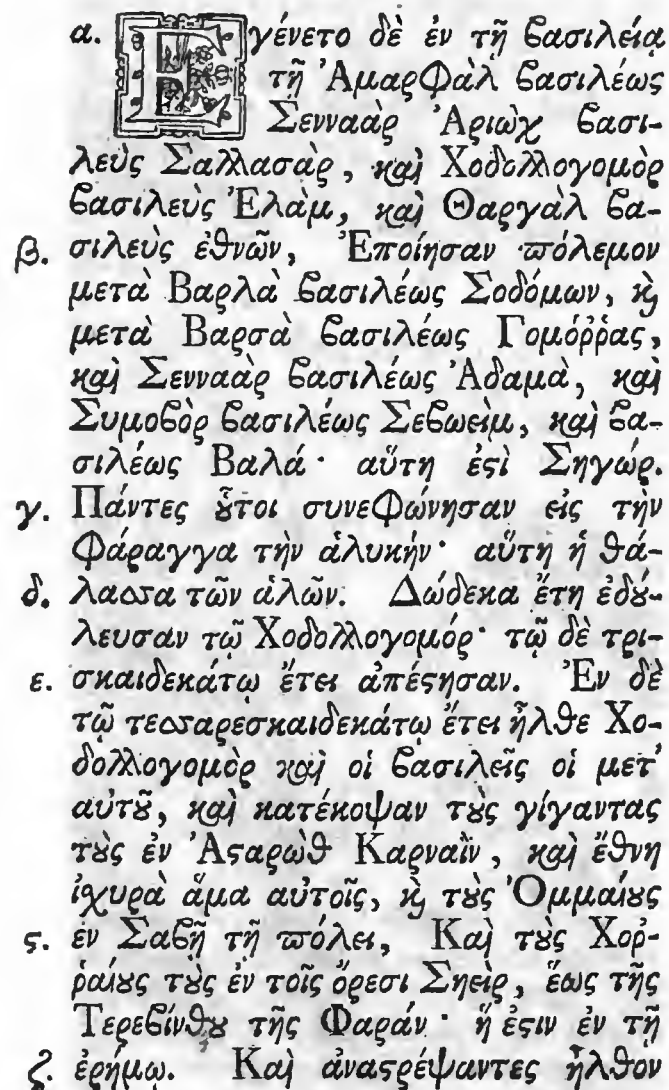 α. Εγένετο δὲ ἐν τῇ βασιλείᾳ
τῇ Ἀμαρφὰλ βασιλέως
Σενναὰρ Ἀριὼχ βασι-
λεὺς Σαλλασὰρ, καὶ Χοδολλογομὸρ
βασιλεὺς Ἐλὰμ, καὶ Θαργὰλ βα-
β. σιλεὺς ἐθνῶν, Ἐποίησαν πόλεμον
μετὰ Βαρλὰ βασιλέως Σοδόμων, καὶ
μετὰ Βαρσὰ βασιλέως Γομόῤῥας,
καὶ Σενναὰρ βασιλέως Ἀδαμὰ, καὶ
Συμοβὸρ βασιλέως Σεβωεὶμ, καὶ βα-
σιλέως Βαλά· αὕτη ἐστὶ Σηγώρ.
γ. Πάντες οὗτοι συνεφώνησαν εἰς τὴν
φάραγγα τὴν ἁλυκήν· αὕτη ἡ θά-
δ. λασσα τῶν ἁλῶν. Δώδεκα ἔτη ἐδού-
λευσαν τῷ Χοδολλογομόρ· τῷ δὲ τρι-
ε. σκαιδεκάτῳ ἔτει ἀπέστησαν. Ἐν δὲ
τῷ τεσσαρεσκαιδεκάτῳ ἔτει ἦλθε Χο-
δολλογομὸρ καὶ οἱ βασιλεῖς οἱ μετ᾽
αὐτοῦ, καὶ κατέκοψαν τοὺς γίγαντας
τοὺς ἐν Ἀσταρὼθ Καρναῒν, καὶ ἔθνη
ἰχυρὰ ἅμα αὐτοῖς, καὶ τοὺς Ὀμμαίους
ϛ. ἐν Σαβῇ τῇ πόλει, Καὶ τοὺς Χοῤ-
ῥαίους τοὺς ἐν τοῖς ὄρεσι Σηεὶρ, ἕως τῆς
Τερεβίνθου τῆς Φαράν· ἥ ἐστιν ἐν τῇ
ζ. ἐρήμῳ. Καὶ ἀναστρέψαντες ἦλθον